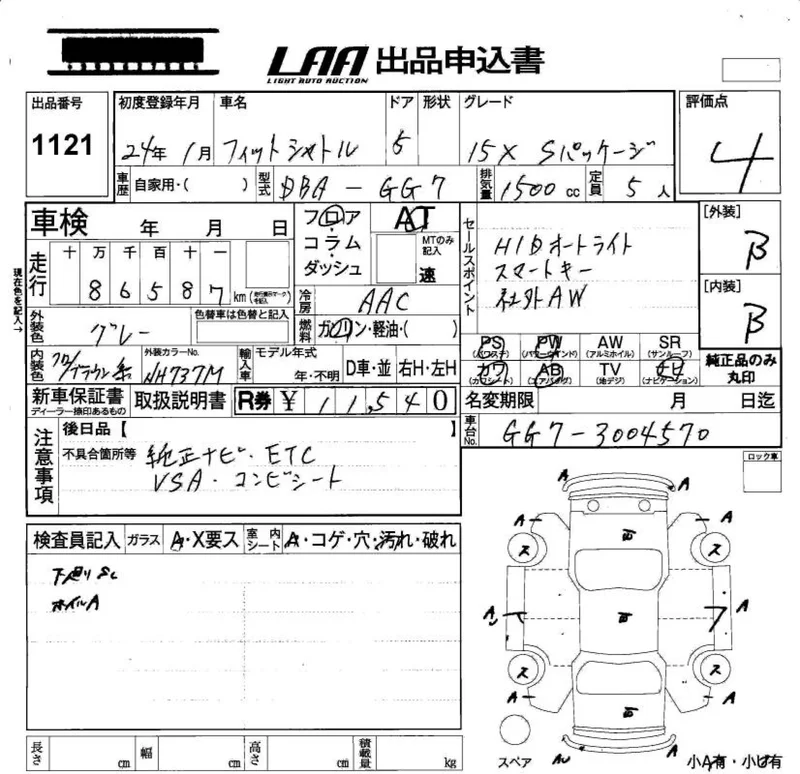 LAA 出品申込書
LIGHT AUTO AUCTION
出品番号
1121
初度登録年月 車名 ドア 形状 グレード
24年 1月 フィットシャトル 5 15X Sパッケージ
評価点
4
車歴 自家用・( ) 型式 DBA-GG7 排気量 1500cc 定員 5人
車検 年 月 日
フロア・コラム・ダッシュ
AT
MTのみ記入
速
セールスポイント
HIDオートライト
スマートキー
社外AW
[外装]
B
[内装]
B
現在色を記入→
走行 十 万 千 百 十 一
8 6 5 8 7 km
冷房 AAC
外装色 グレー
色替車は色替と記入
燃料 ガソリン・軽油・( )
PS (パワステ) PW (パワーウインド) AW (アルミホイル) SR (サンルーフ)
カワ (カワシート) AB (エアバッグ) TV (地デジ) ナビ (ナビゲーション)
純正品のみ丸印
内装色
外装カラーNo.
NH737M
輸入車 モデル年式
年・不明 D車・並 右H・左H
新車保証書
ディーラー捺印あるもの
取扱説明書 R券 ¥ 11,540
名変期限 月 日迄
車台No. GG7-3004570
注意事項
後日品【 】
不具合箇所等 純正ナビ・ETC
VSA・コンビシート
ロック車
検査員記入 ガラス A・X要ス 室内シート A・コゲ・穴・汚れ・破れ
下廻りSC
ホイルA
A A
A A
ス ス
A A
ス ス
A A
スペア AU 小A有・小U有
長さ cm 幅 cm 高さ cm 積載量 kg